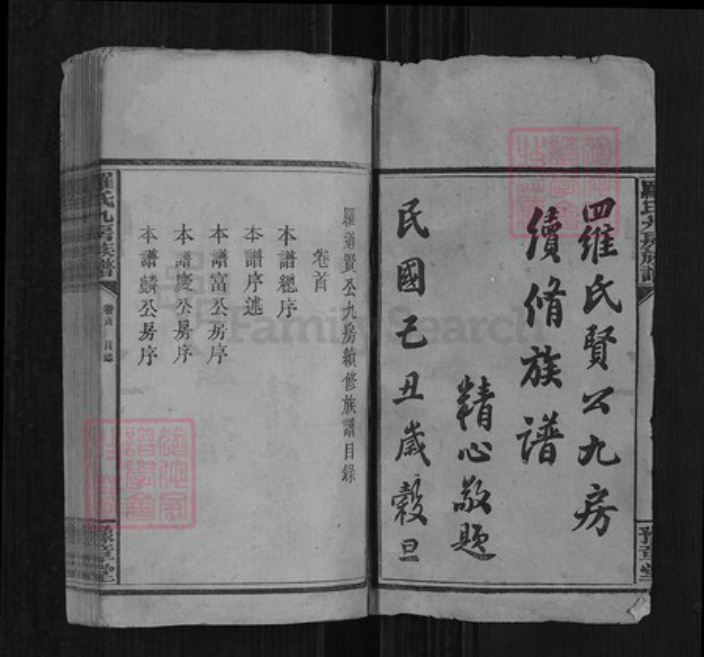 羅氏賢公九房
續脩族譜
精心敬題
民國己丑歲穀旦
羅道賢公九房續修族譜目錄
卷首
本譜總序
本譜序述
本譜富公房序
本譜慶公房序
本譜麟公房序
羅氏九房族譜
卷首 目錄
豫章堂
羅氏九房族譜
豫章堂
FamilySearch